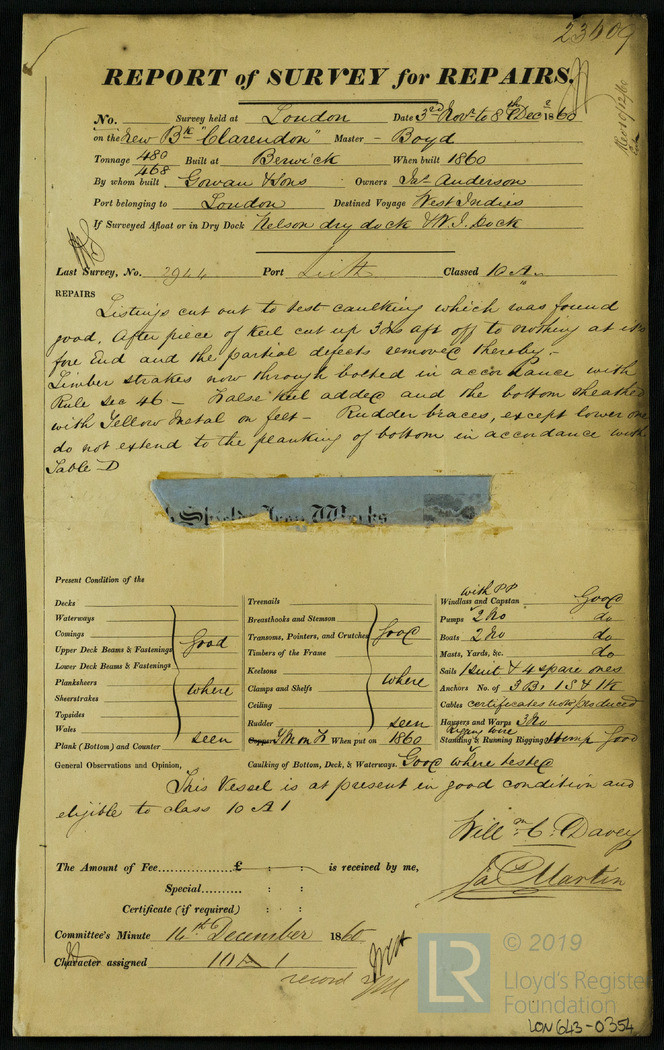 23409
REPORT of SURVEY for REPAIRS.
No. Survey held at London Date 3rd Novr to 8th Decr 1860
on the New Bk "Clarendon" Master - Boyd
Tonnage 480 Built at Berwick When built 1860
468
By whom built Gowan & Sons Owners Jas Anderson
Port belonging to London Destined Voyage West Indies
If Surveyed Afloat or in Dry Dock Nelson dry dock & W. I. Dock
Last Survey, No. 2944 Port Leith Classed 10 A
REPAIRS
Listings cut out to test caulking which was found
good. After piece of Keel cut up 3 Ins aft off to nothing at its
fore End and the partial defects removed thereby.-
Limber strakes now through bolted in accordance with
Rule Sec 46 - False Keel added and the bottom sheathed
with Yellow Metal on felt - Rudder braces, except lower one
do not extend to the planking of bottom in accordance with
Table D
Shields Iron Works
Present Condition of the
Decks
Waterways
Comings
Upper Deck Beams & Fastenings
Lower Deck Beams & Fastenings
Planksheers
Sheerstrakes
Topsides
Wales
Plank (Bottom) and Counter
Good
where
seen
Treenails
Breasthooks and Stemson
Transoms, Pointers, and Crutches
Timbers of the Frame
Keelsons
Clamps and Shelfs
Ceiling
Rudder
Good
where
seen
Copper YM on F When put on 1860
with PP
Windlass and Capstan Good
Pumps 2 No do
Boats 2 No do
Masts, Yards, &c. do
Sails 1 suit & 4 spare ones
Anchors No. of 3 B. 1 S & 1 K
Cables certificates now produced
Hawsers and Warps 3 No
Rigging wire
Standing & Running Rigging Hemp Good
General Observations and Opinion, Caulking of Bottom, Deck, & Waterways. Good where tested
This Vessel is at present in good condition and
eligible to class 10 A 1
Willm C. Davey
Jas Martin
The Amount of Fee £ : : is received by me,
Special : :
Certificate (if required) : :
Committee's Minute 14th December 1860
Character assigned 10 A 1
record YM
LR © 2019
Lloyd's Register
Foundation
LON643-0354